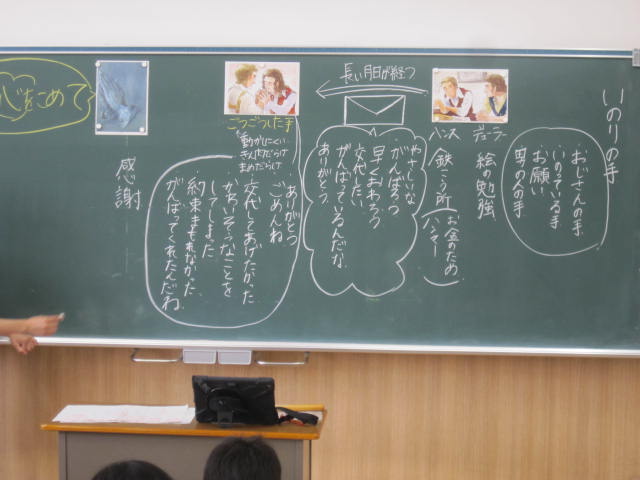 いのりの手
おじさんの手
いのっている手
お願い
男の人の手
デューラー
絵の勉強
ハンス
鉄こう所
お金のため
ハンマー
長い月日が経つ
やさしいな
がんばろう
早くおわろう
交代したい
がんばっているんだな
ありがとう
ごつごつした手
動かしにくい
きずだらけ
まめだらけ
ありがとう
ごめんね
交代してあげたかった
かわいそうなことを
してしまった
約束まもれなかった
がんばってくれたんだね
感謝
心をこめて